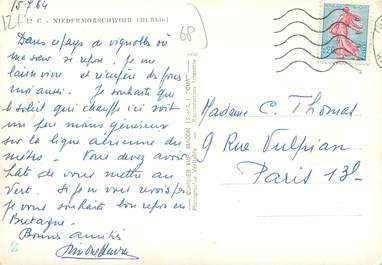 15.7.64
12f
68
12 C - NIEDERMORSCHWIHR (Ht-Rhin)
Dans ce pays de vignobles
ma sœur se repose. Je me
laisse vivre et récupère des forces
moi aussi. Je souhaite que
le soleil qui chauffe ici soit
un peu moins généreux
sur la ligne aérienne du
métro. Vous devez avoir
hâte de vous mettre au
vert. Si je ne vous revois pas je
vous souhaite bon repos en
Bretagne.
Bonnes amitiés
COMBIER IMP. MACON (S.-&-L.) "CIM"
Photographie Véritable - Reproduction Interdite
Madame C. Thomas
9 Rue Vulpian
Paris 13e